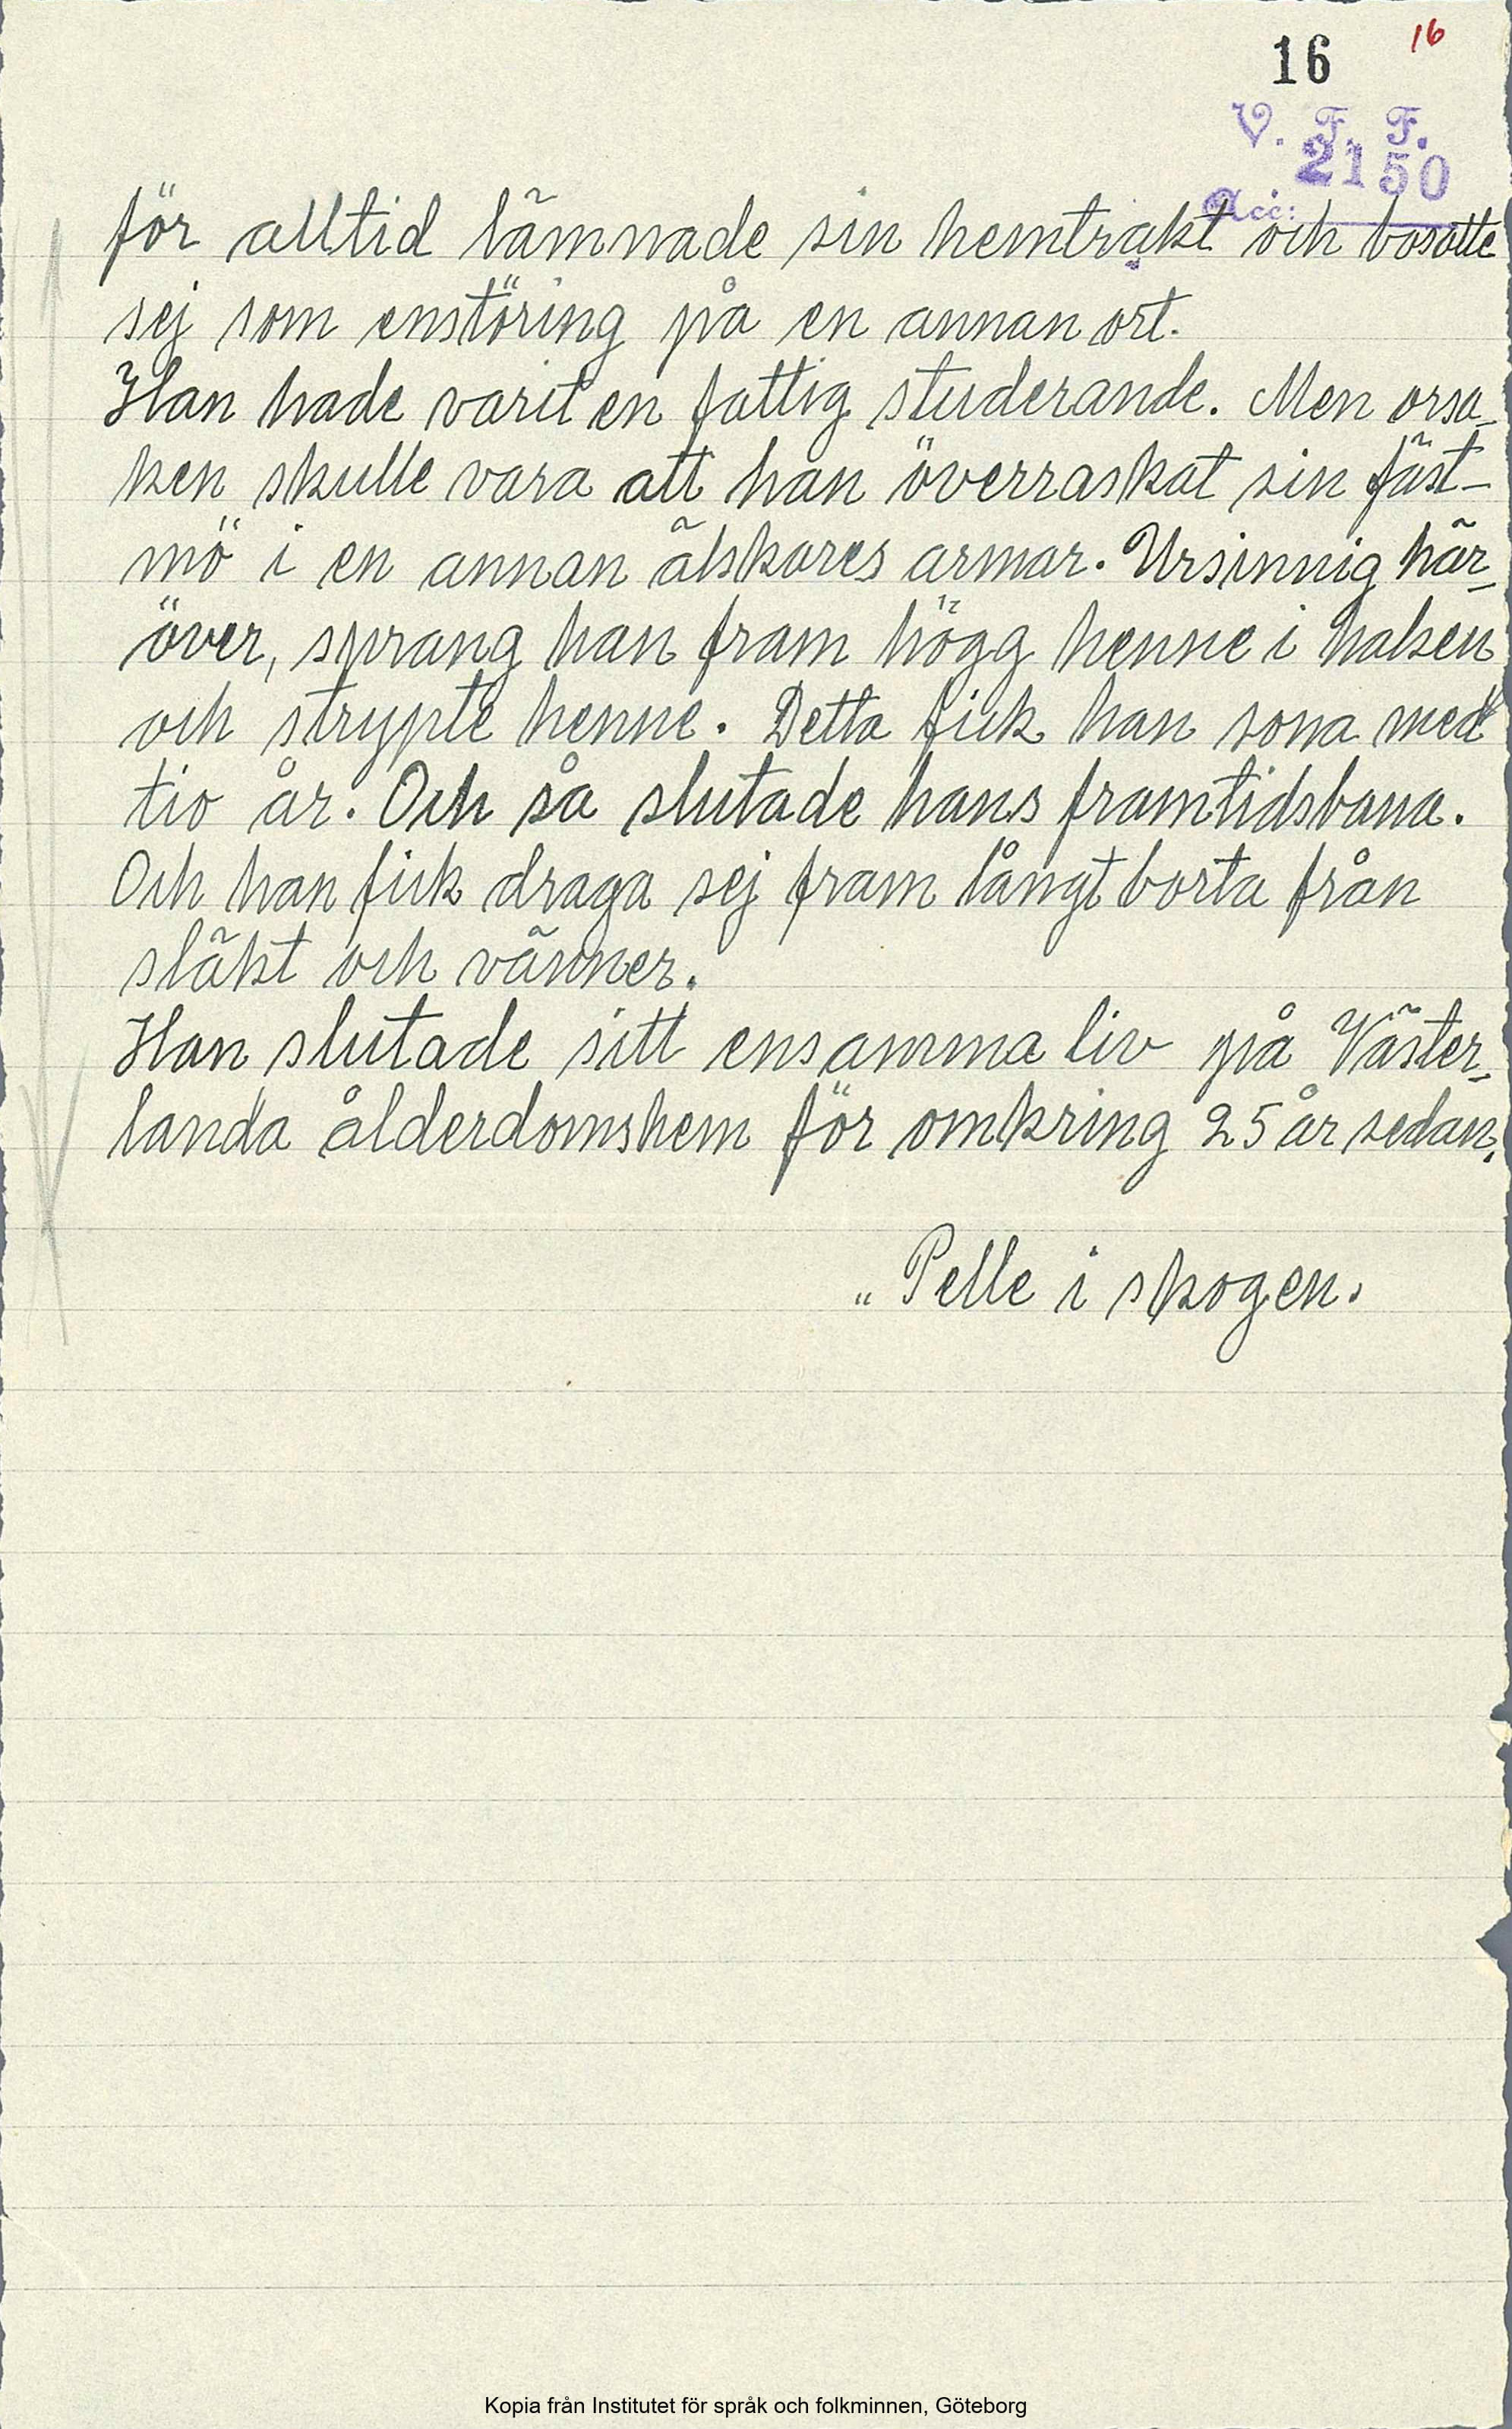 16 16
V. F. F.
2150
Acc:
för alltid lämnade sin hemtrakt och bosatte
sej som enstöring på en annan ort.
Han hade varit en fattig studerande. Men orsa-
ken skulle vara att han överraskat sin fäst-
mö i en annan älskares armar. Ursinnig här-
över, sprang han fram högg henne i halsen
och strypte henne. Detta fick han sona med
tio år. Och så slutade hans framtidsbana.
Och han fick draga sej fram långt borta från
släkt och vänner.
Han slutade sitt ensamma liv på Väster-
landa ålderdomshem för omkring 25 år sedan.
„ Pelle i skogen.
Kopia från Institutet för språk och folkminnen, Göteborg